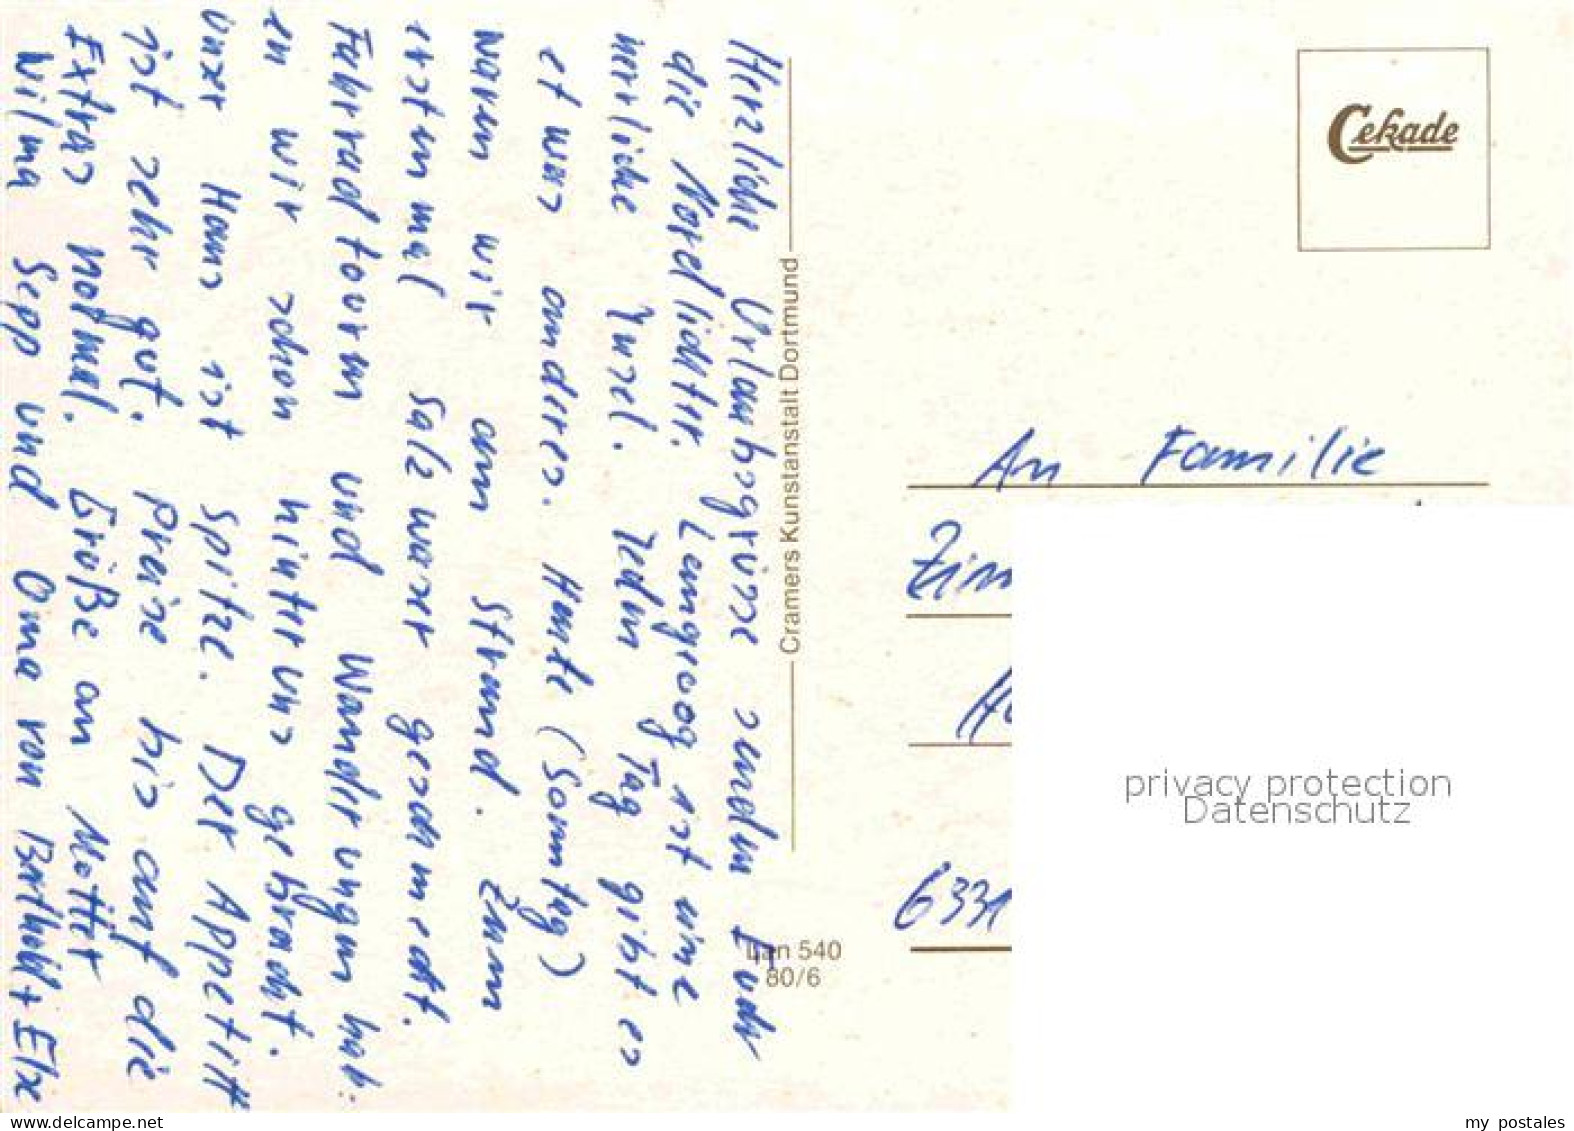 Herzliche Urlaubsgrüsse senden Euch
die Nordlichter. Langeoog ist eine
herrliche Insel. Jeden Tag gibt es
etwas anderes. Heute (Sonntag)
waren wir am Strand. Zum
erstenmal Salzwasser geschmeckt.
Fahrradtouren und Wanderungen hab-
en wir schon hinter uns gebracht.
Unser Haus ist Spitze. Der Appetitt
ist sehr gut. Preise bis auf die
Extras normal. Grüße an
Wilma Sepp und Oma von Berthold + Else
Cramers Kunstanstalt Dortmund
Lan 540
80/6
Cekade
An Familie
Zim
6331
privacy protection
Datenschutz
my postales